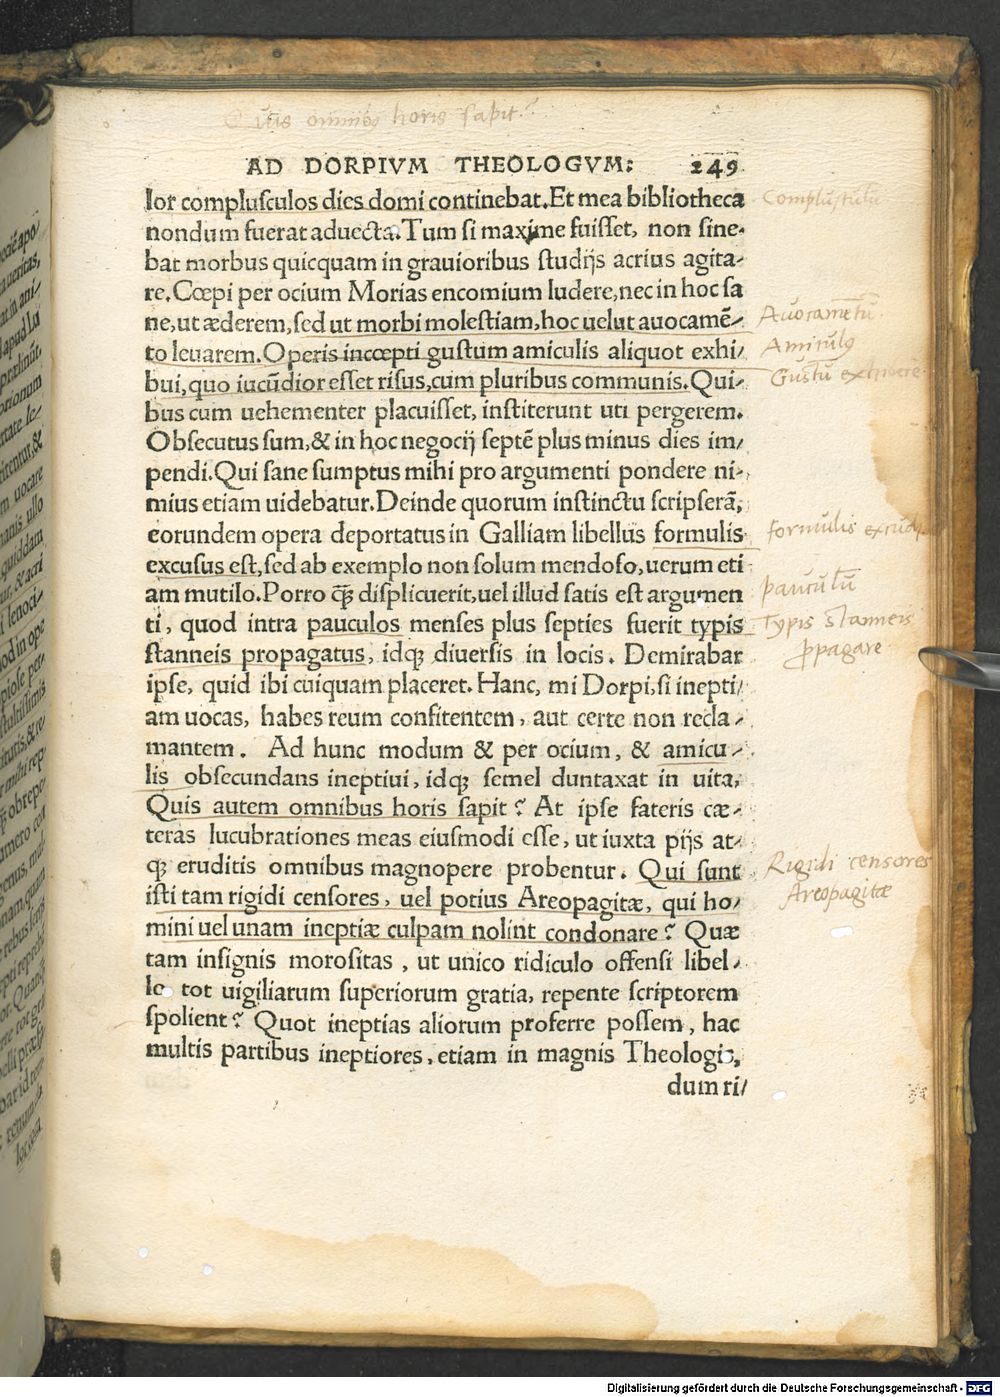 Quis omnibꝯ horis sapit?
AD DORPIVM THEOLOGVM: 249
lor complusculos dies domi continebat. Et mea bibliotheca
nondum fuerat aduecta. Tum si maxime fuisset, non sine-
bat morbus quicquam in grauioribus studijs acrius agita-
re. Cœpi per ocium Morias encomium ludere, nec in hoc sa
ne, ut æderem, sed ut morbi molestiam, hoc uelut auocamē-
to leuarem. Operis incœpti gustum amiculis aliquot exhi/
bui, quo iucūdior esset risus, cum pluribus communis. Qui-
bus cum uehementer placuisset, institerunt uti pergerem.
Obsecutus sum, & in hoc negocij septē plus minus dies im/
pendi. Qui sane sumptus mihi pro argumenti pondere ni-
mius etiam uidebatur. Deinde quorum instinctu scripserā,
eorundem opera deportatus in Galliam libellus formulis
excusus est, sed ab exemplo non solum mendoso, uerum eti
am mutilo. Porro q̄ꝫ displicuerit, uel illud satis est argumen
ti, quod intra pauculos menses plus septies fuerit typis
stanneis propagatus, idqꝫ diuersis in locis. Demirabar
ipse, quid ibi cuiquam placeret. Hanc, mi Dorpi, si inepti/
am uocas, habes reum confitentem, aut certe non recla-
mantem. Ad hunc modum & per ocium, & amicu-
lis obsecundans ineptiui, idqꝫ semel duntaxat in uita,
Quis autem omnibus horis sapit? At ipse fateris cæ-
teras lucubrationes meas eiusmodi esse, ut iuxta pijs at-
qꝫ eruditis omnibus magnopere probentur. Qui sunt
isti tam rigidi censores, uel potius Areopagitæ, qui ho/
mini uel unam ineptiæ culpam nolint condonare? Quæ
tam insignis morositas, ut unico ridiculo offensi libel-
lo tot uigiliarum superiorum gratia, repente scriptorem
spolient? Quot ineptias aliorum proferre possem, hac
multis partibus ineptiores, etiam in magnis Theologis,
dum ri/
Complusculi
Auocamētū.
Amiculꝯ
Gustū exhibere
formulis excud
pauculū
Typis stanneis
ꝓpagare
Rigidi censores
Areopagitæ
Digitalisierung gefördert durch die Deutsche Forschungsgemeinschaft - DFG